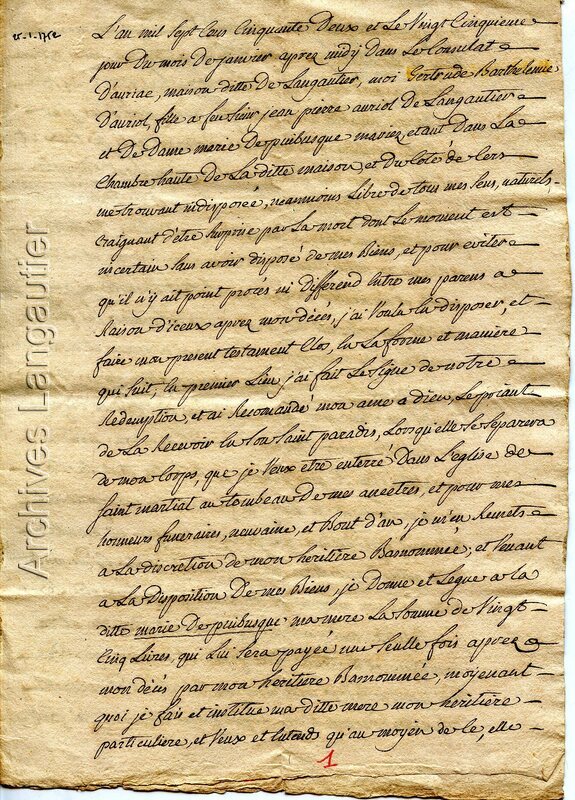 25-1-1752
L'an mil sept Cens Cinquante Deux et Le Vingt Cinquieme
jour Du mois de janvier aprez midy dans Le Consulat
D'auriac, maison ditte de Langautier, moi Gertrude Barthelemie
D'auriol, fille a feu sieur jean pierre auriol de Langautier
et De Dame marie de puibusque mariez, etant Dans La
Chambre haute De La ditte maison, et Du Coté de Cers
me trouvant indisposée, neanmoins Libre de tous mes sens, naturels,
Craignant d'être surprise par La mort dont Le moment est
incertain sans avoir disposé de mes Biens, et pour eviter
qu'il n'y ait point procés ni Differend Entre mes parens a
Raison d'iceux aprez mon décés, j'ai Voulu En disposer, et
faire mon present testament Clos, En La forme et maniere
qui suit, En premier Lieu j'ai fait Le signe de notre
Redemption, et ai Recomandé mon ame a dieu, Le priant
de La Recevoir En son saint paradis, Lorsqu'elle se separera
de mon Corps, que je Veux etre enterré Dans L'eglise de
saint martial au tombeau De mes ancetres, et pour mes
honneurs funeraires, neuvaine, et Bout d'an, je m'en Remets
a La discretion de mon heritiere Basnommée; et Venant
a La Disposition De mes Biens, je Donne et Legue a la
ditte marie De puibusque ma mere La somme de Vingt
Cinq Livres, qui Lui sera payée une seulle fois aprez
mon décés par mon heritiere Basnommée, moyenant
quoi je fais et institue ma ditte mere mon heritière
particuliere, et Veux et Entends qu'au moyen de ce, elle
1
Archives Langautier